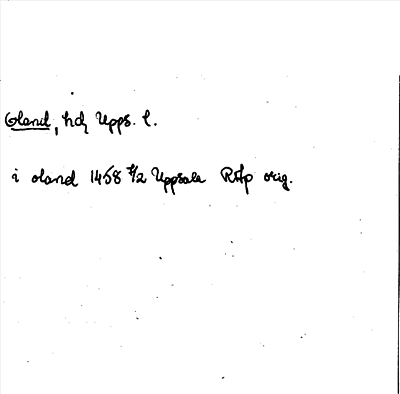 Oland, hd Upps. l.
i oland 1458 ½ Uppsala RAp orig.